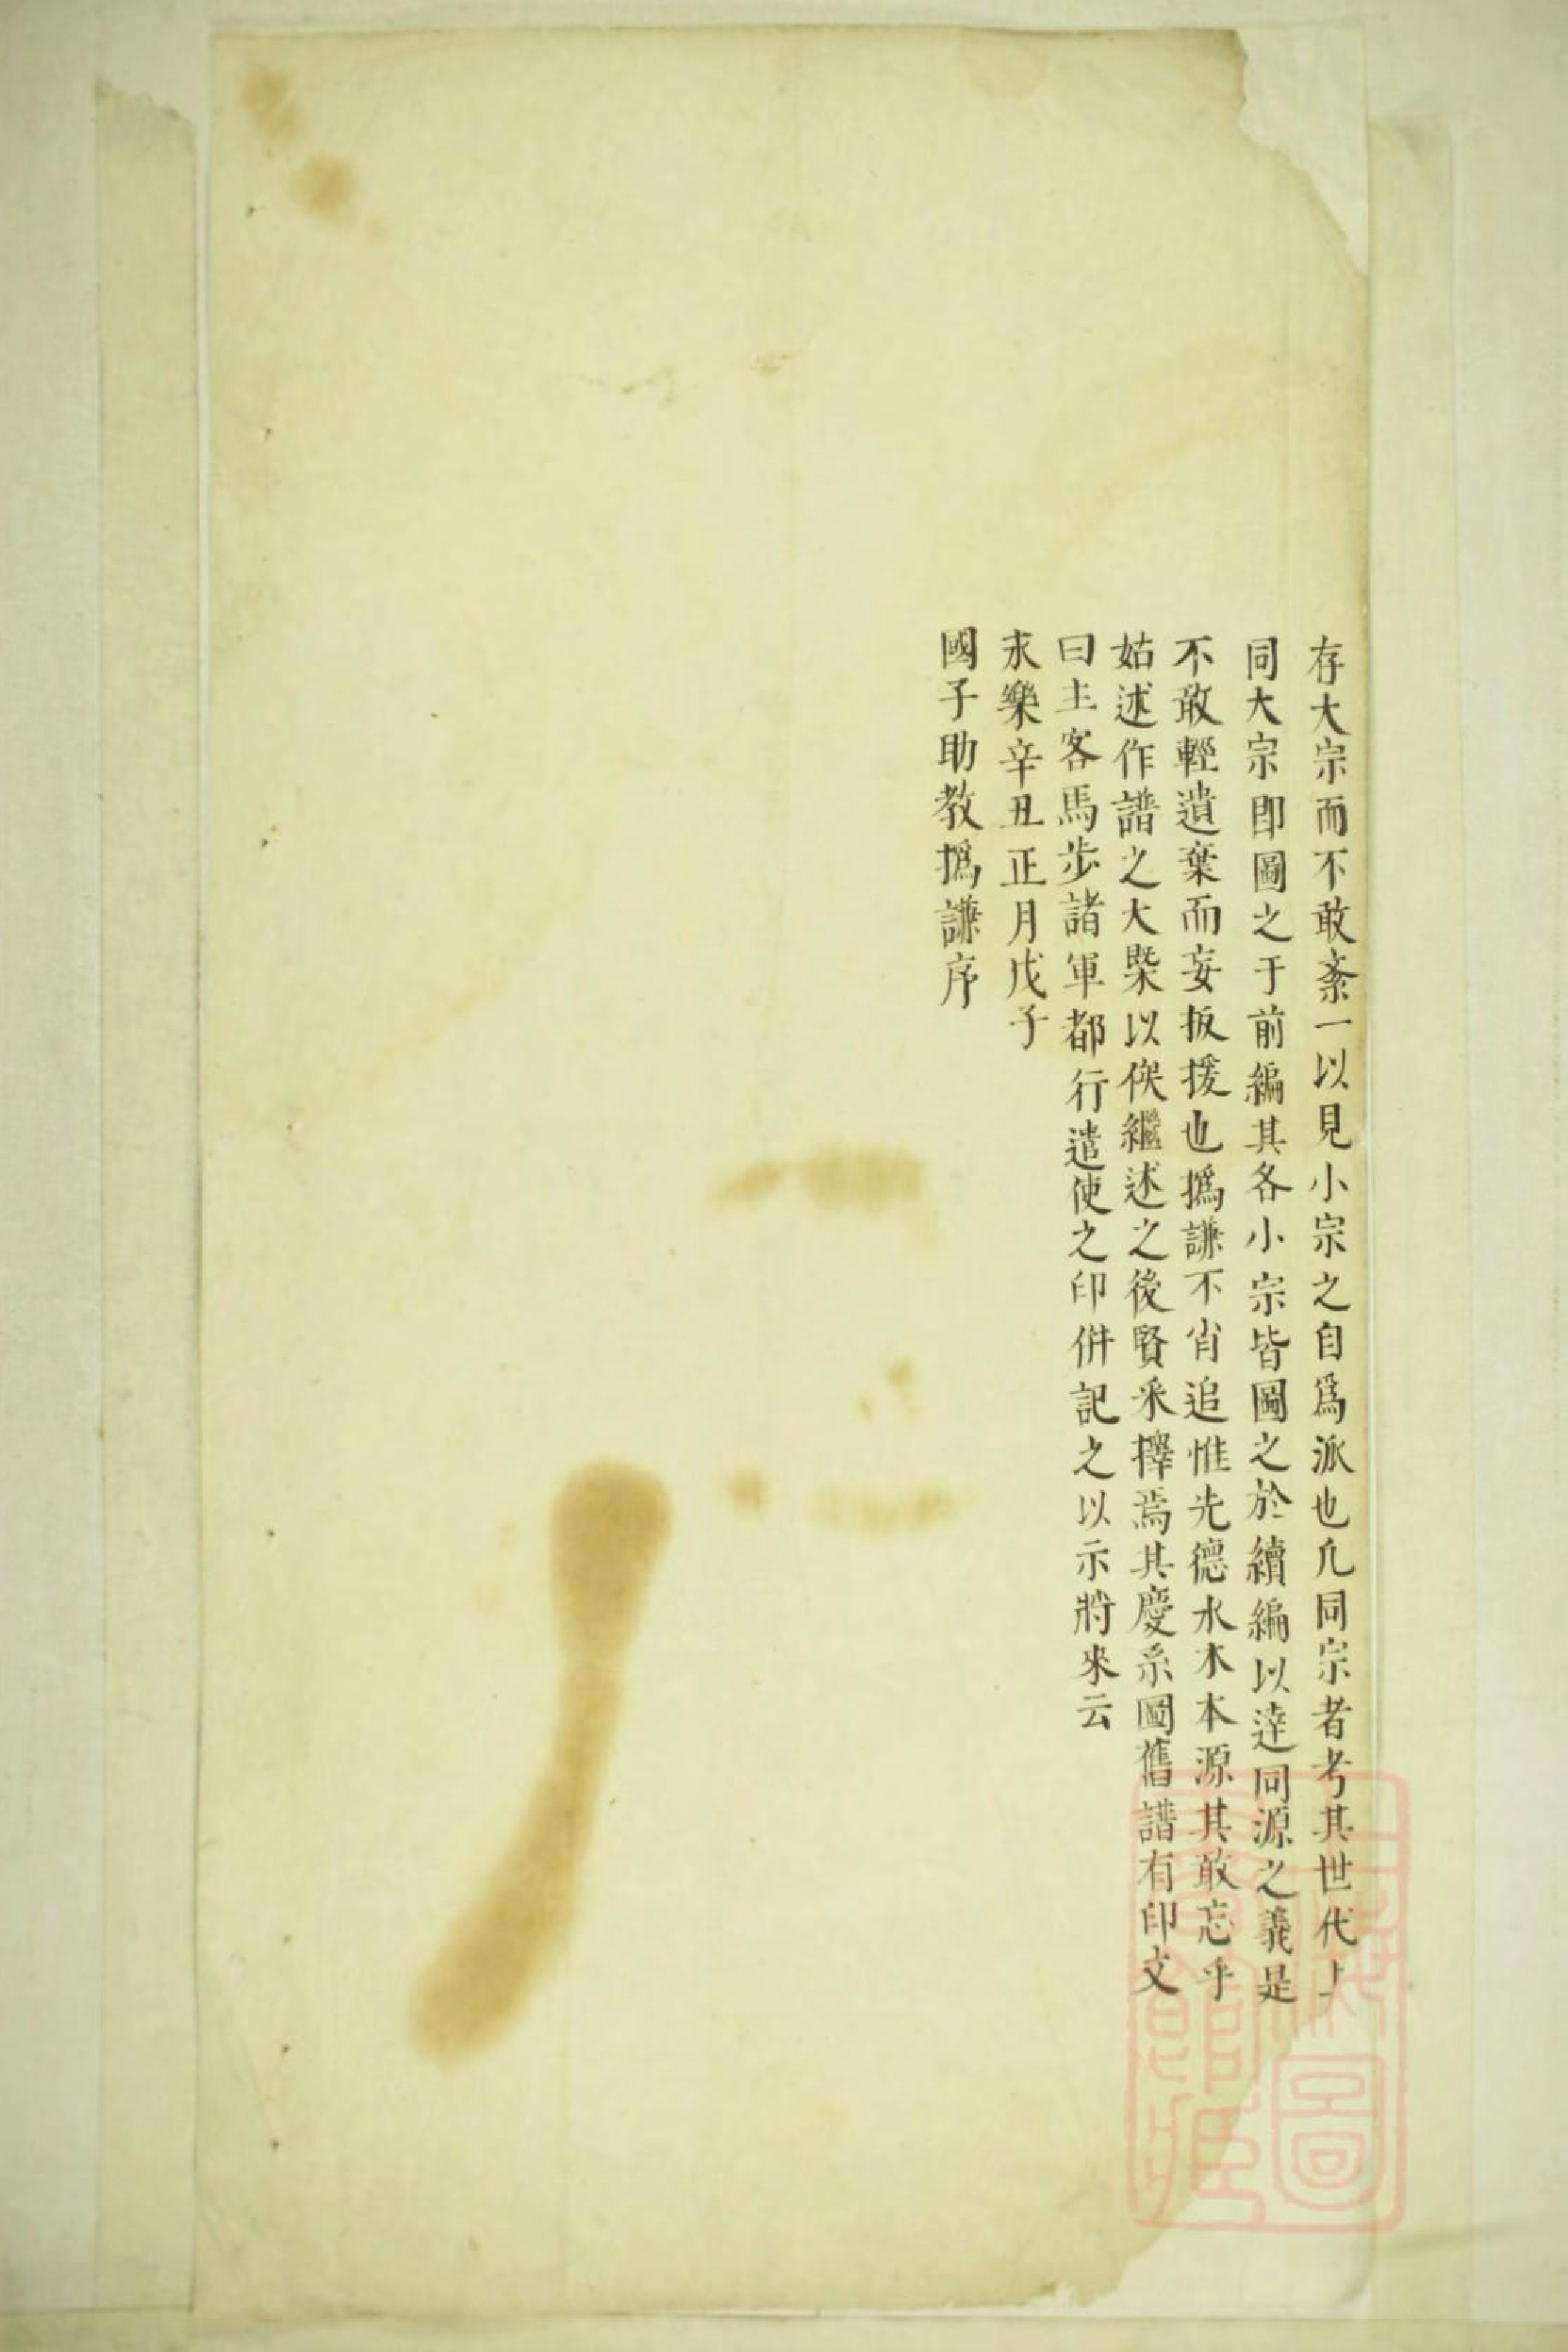 存大宗而不敢紊一以見小宗之自爲派也凢同宗者考其世代上
同大宗即圖之于前編其各小宗皆圖之於續編以達同源之義是
不敢輕遺棄而妄扳援也撝謙不肖追惟先德水木本源其敢忘乎
姑述作譜之大槩以俟繼述之後賢采擇焉其慶系圖舊譜有印文
曰主客馬步諸軍都行遣使之印併記之以示將來云
永樂辛丑正月戊子
國子助教撝謙序
上海圖書館藏